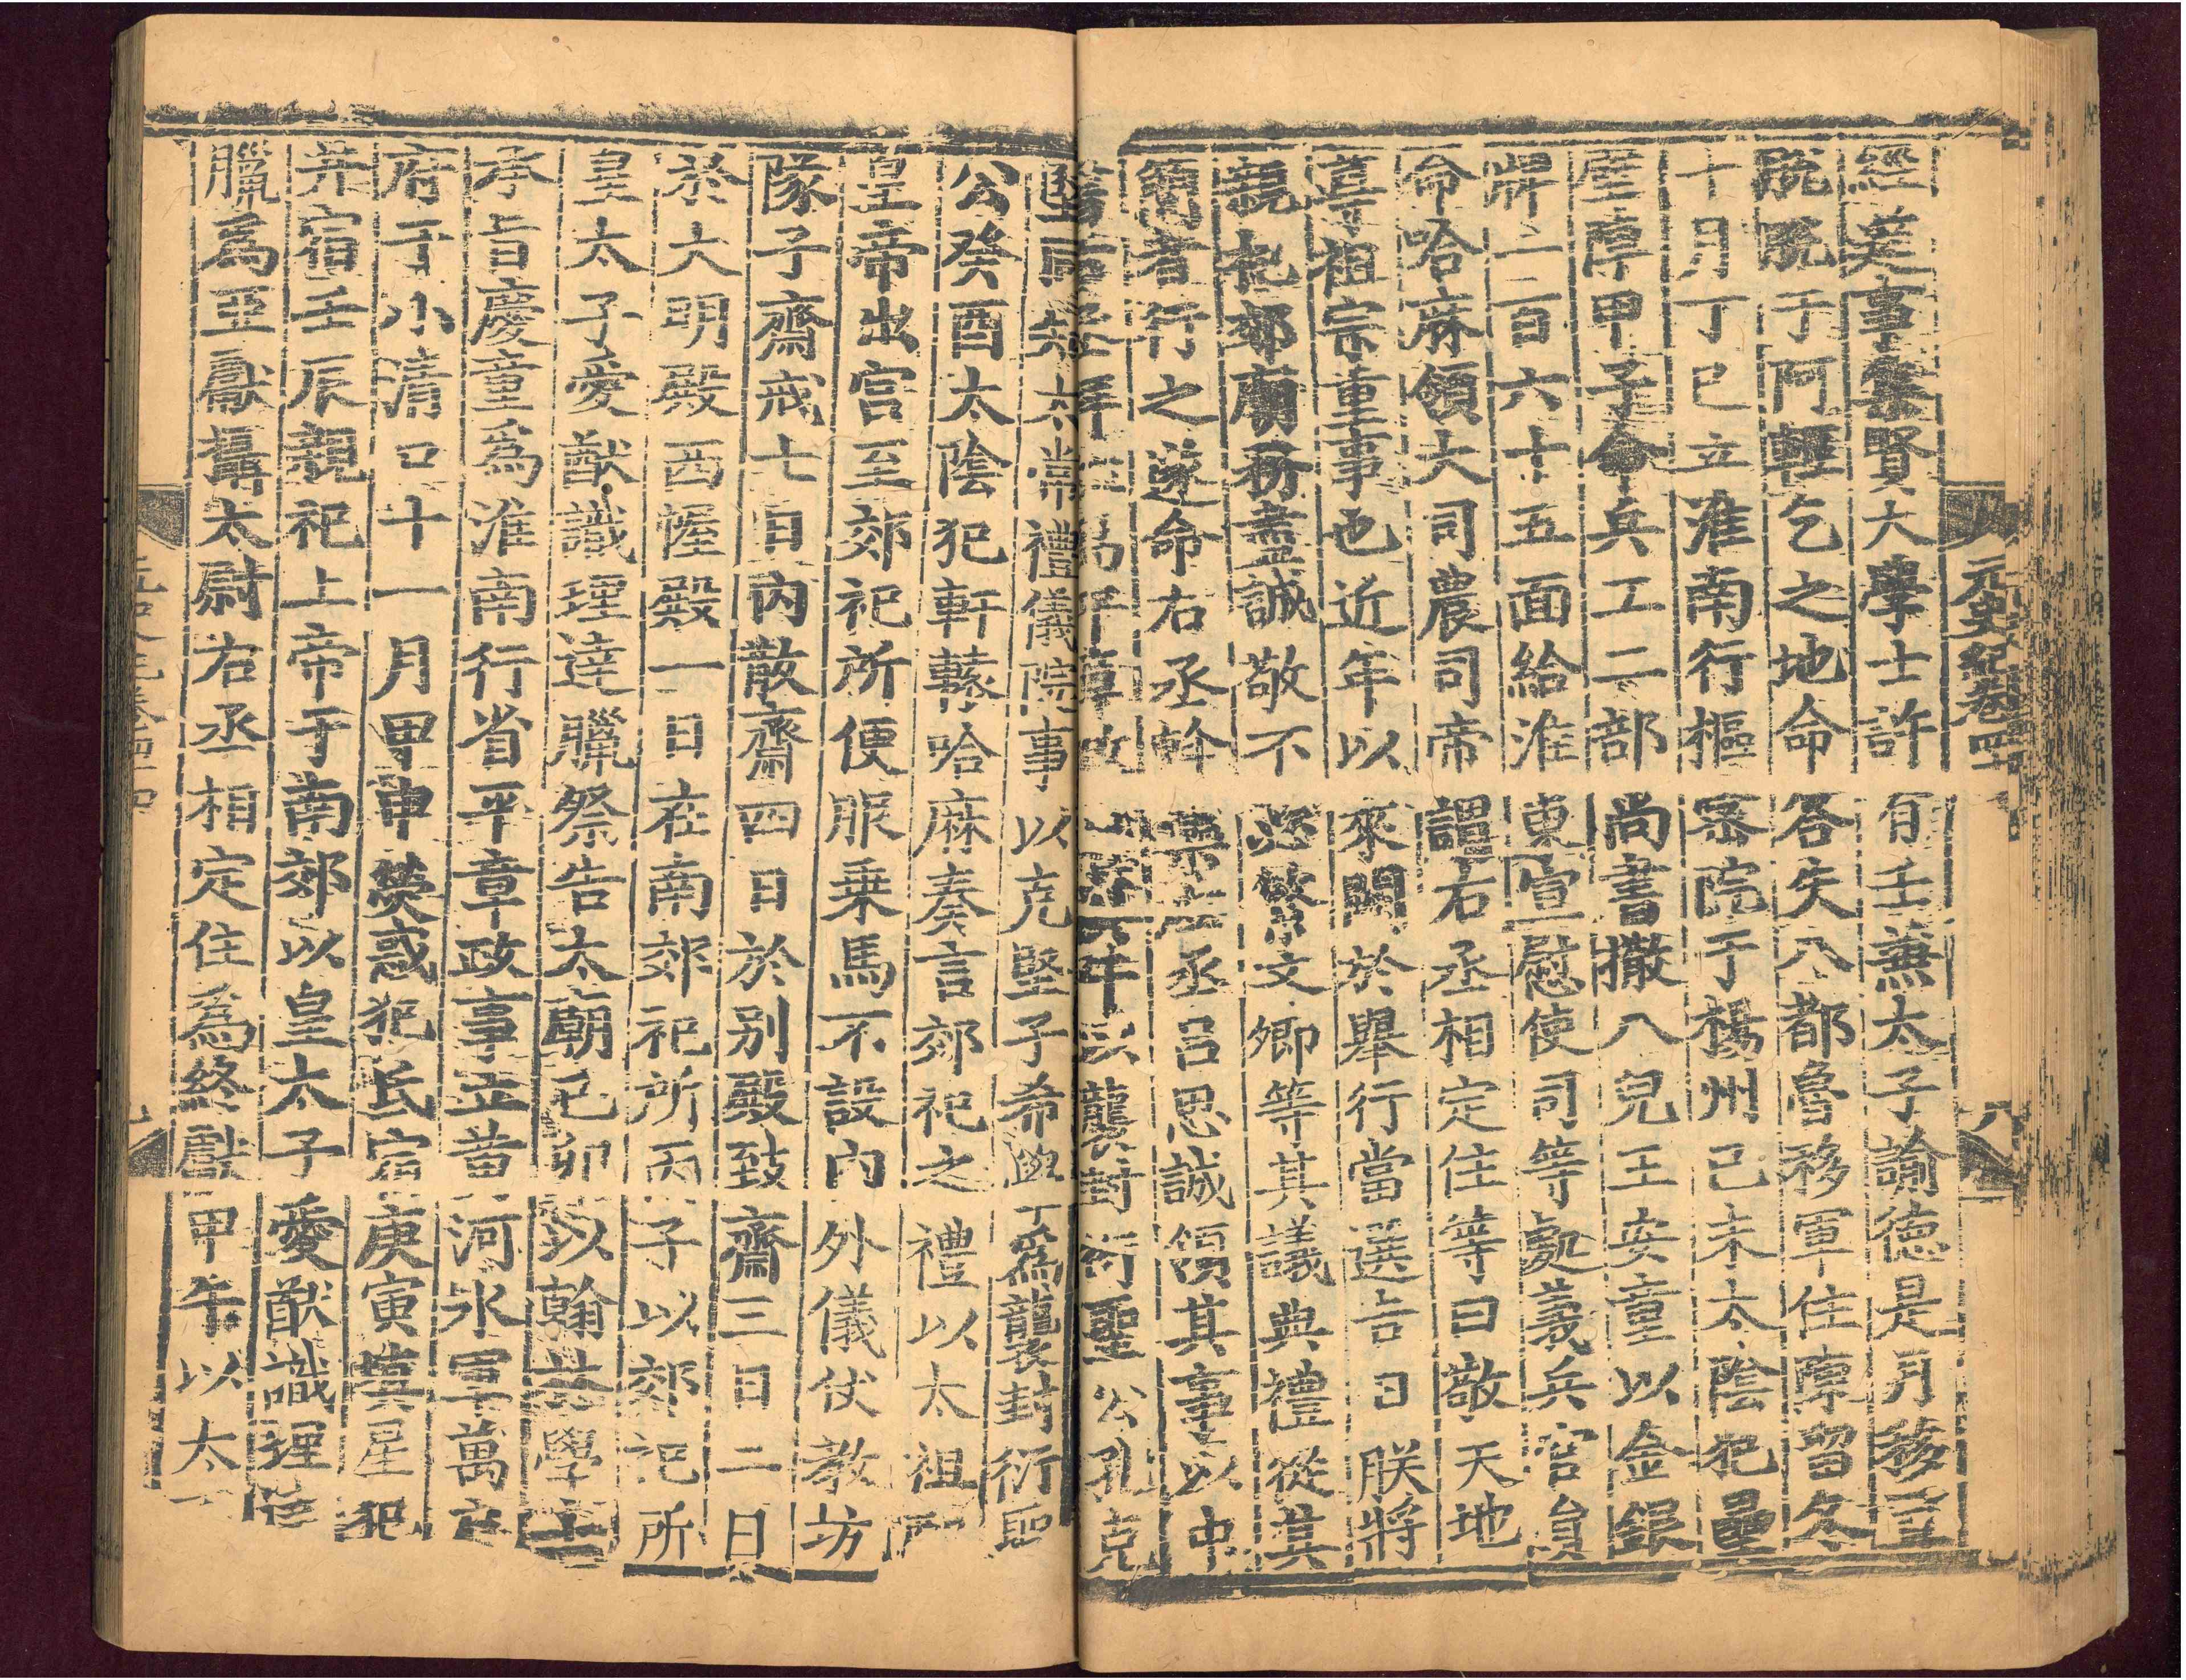 元史紀卷四十四
八
經筵事集賢大學士許有壬兼太子諭德是月移置
脫脫于阿輕乞之地命答失八都魯移軍住陳留冬
十月丁巳立淮南行樞密院于揚州己未太陰犯壘
壁陣甲子命兵工二部尚書撒八兒王安童以金銀
牌二百六十五面給淮東宣慰使司等處義兵官員
命哈麻領大司農司帝謂右丞相定住等曰敬天地
尊祖宗重事也近年以來闕於舉行當選吉日朕將
親祀郊廟務盡誠敬不必繁文卿等其議典禮從其
簡者行之遂命右丞斡欒左丞呂思誠領其事以中
襲封衍聖公孔克
堅同知太常禮儀院事以克堅子希學爲襲封衍聖
公癸酉太陰犯軒轅哈麻奏言郊祀之禮以太祖
皇帝出宮至郊祀所便服乘馬不設內外儀仗教坊
隊子齋戒七日內散齋四日於别殿致齋三日二日
於大明殿西幄殿一日在南郊祀所丙子以郊祀所
皇太子愛猷識理達臘祭告太廟己卯以翰林學士
承旨慶童爲淮南行省平章政事立黃河水軍萬戶
府于小清口十一月甲申熒惑犯氐宿庚寅填星犯
井宿壬辰親祀上帝于南郊以皇太子愛猷識理達
臘爲亞獻攝太尉右丞相定住爲終獻甲午以太